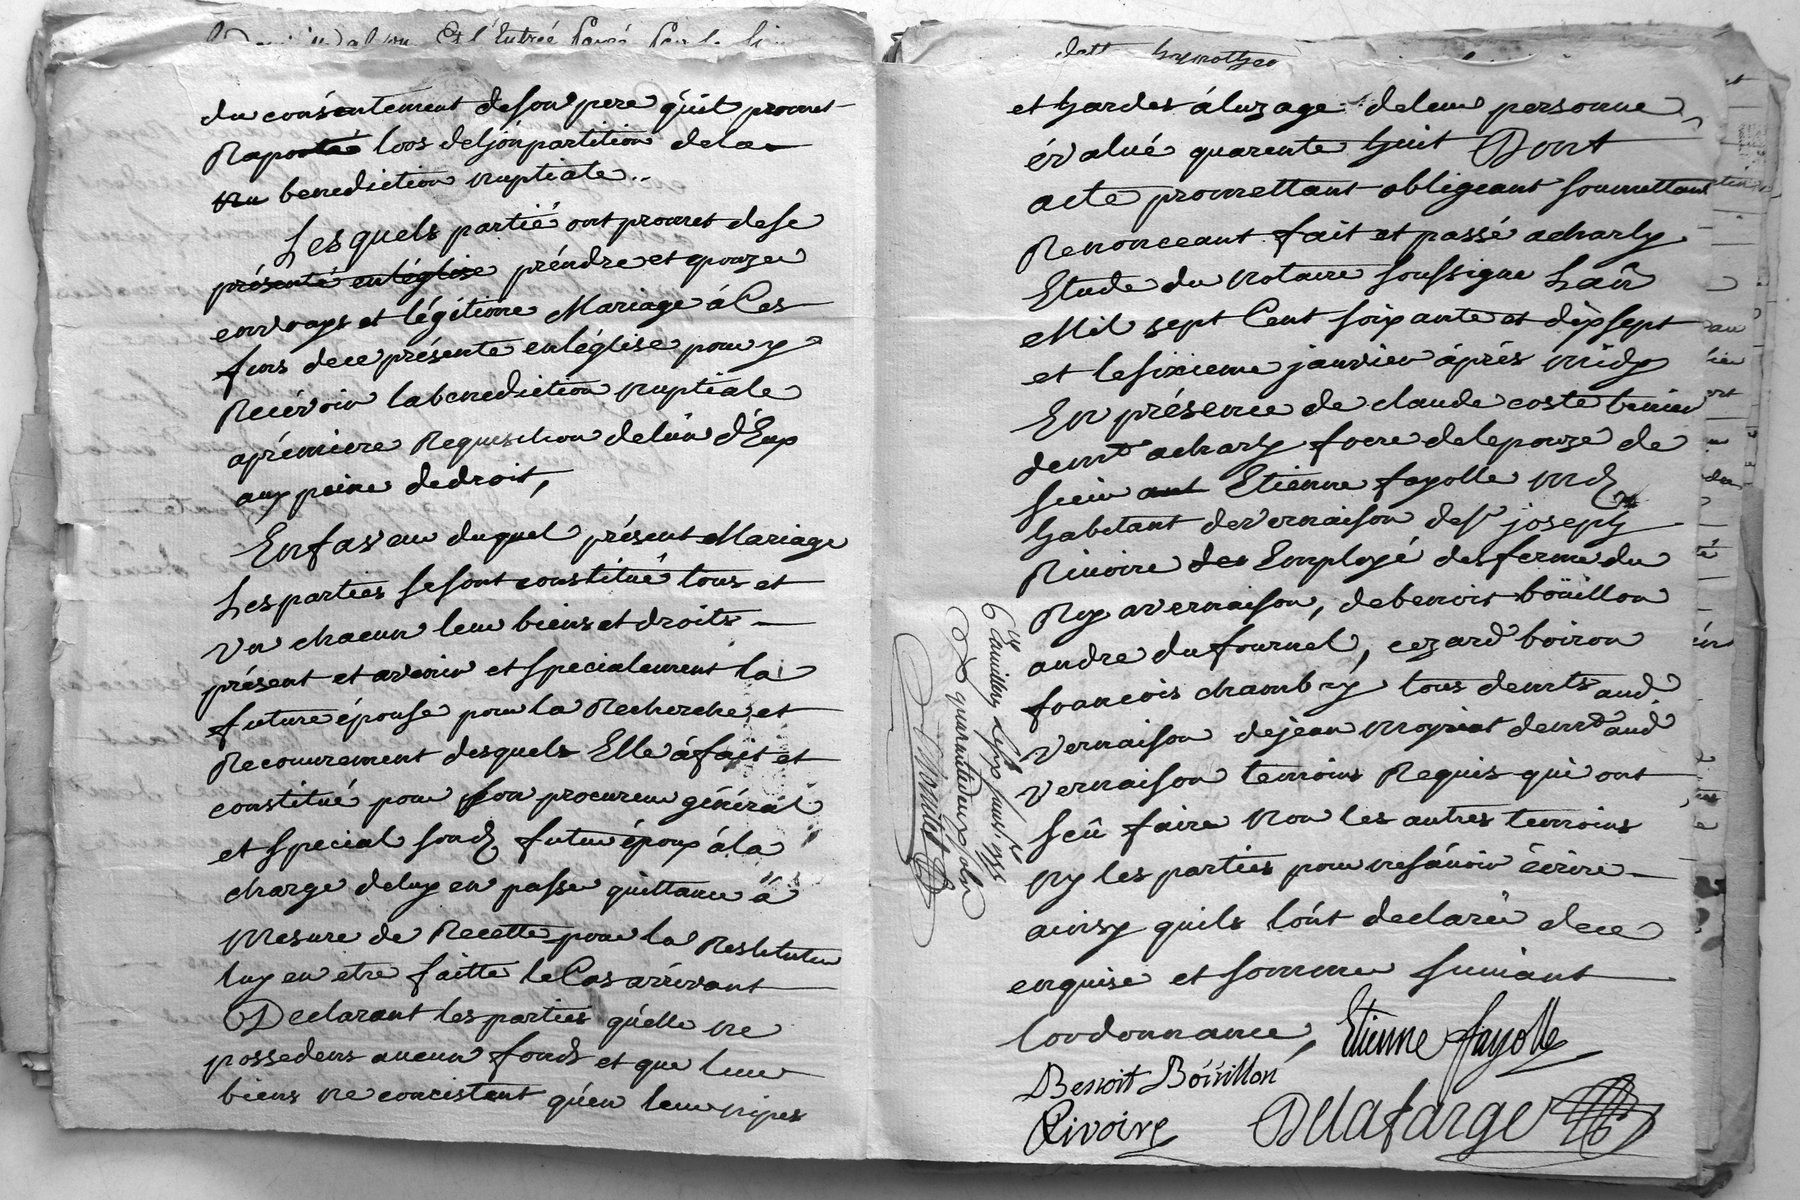 du consentement de son pere qu'il promet
Raporté lors de ljonpartition dela
nu benediction nuptiale..
Les quels partié ont promet de se
présenté en léglise préndre et épouzer
en vrays et légitime Mariage á Ces
fins de ce présente en léglise pour y
Recévoir la benediction nuptiale
aprémiere Requisition de lún d'Eux
aux peine de droit,
En faveur duquel présent Mariage
Les parties se sont constitué tous et
un chacun leur biens et droits
présent et avenir et specialement la
future épouse pour la Recherche et
Recouvrement desquels Elle á fait et
constitué pour son procureur général
et special sond futur époux á la
charge de luy en passer quittance á
Mesure de Recette pour la Restitution
luy en etre faitte le Cas arrivant
Declarant les parties quélle ne
possedens aucun fonds et que leur
biens ne concistent qúen leur nipes
et hardes á luzage de leur personne
évalué quarente huit Dont
acte promettant obligeant soumettant
Renonceant fait et passé a charly
Etude du notaire soussigne Lan
Mil sept Cent soixante et dix sept
et le sixieme janvier áprés midy
En présence de claude coste
demt a charly frere de lepouze de
Etienne fayolle md
habitant de vernaison de sr joseph
Rivoire des Employé des ferme du
Roy a vernaison, de benoit boüillon
andre du fournel, cezard boiron
francois chambry tous demts aud
vernaison de jean demt aud
vernaison temoins Requis qui ont
sçû faire non les autres temoins
ny les parties pour ne sávoir écrire
ainsy quils lónt declaré de ce
enquise et sommer suivant
lordonnance, Etienne fayolle
Benoit Bóüillon
Rivoire Delafarge